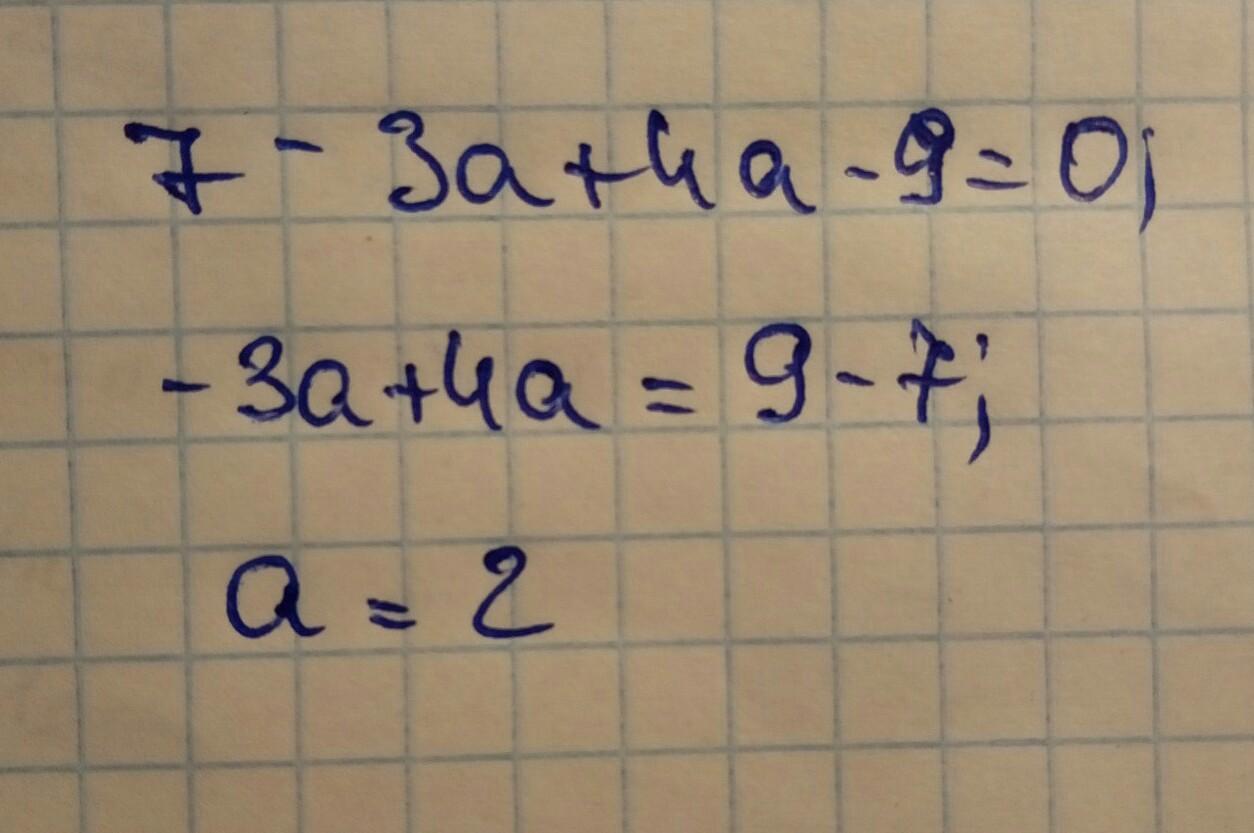 7 - 3a + 4a - 9 = 0;
-3a + 4a = 9 - 7;
a = 2